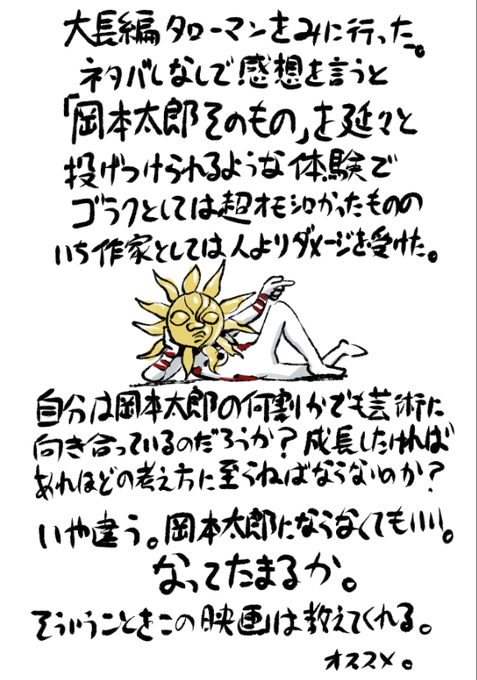 大長編タローマンをみに行った。
ネタバレなしで感想を言うと
「岡本太郎そのもの」を延々と
投げつけられるような体験で
ゴラクとしては超オモシロかったものの
いち作家としては人よりダメージを受けた。
自分は岡本太郎の何割かでも芸術に
向き合っているのだろうか?成長したければ
あれほどの考え方に至らねばならないのか?
いや違う。岡本太郎にならなくてもいい。
なってたまるか。
そういうことをこの映画は教えてくれる。
オススメ。